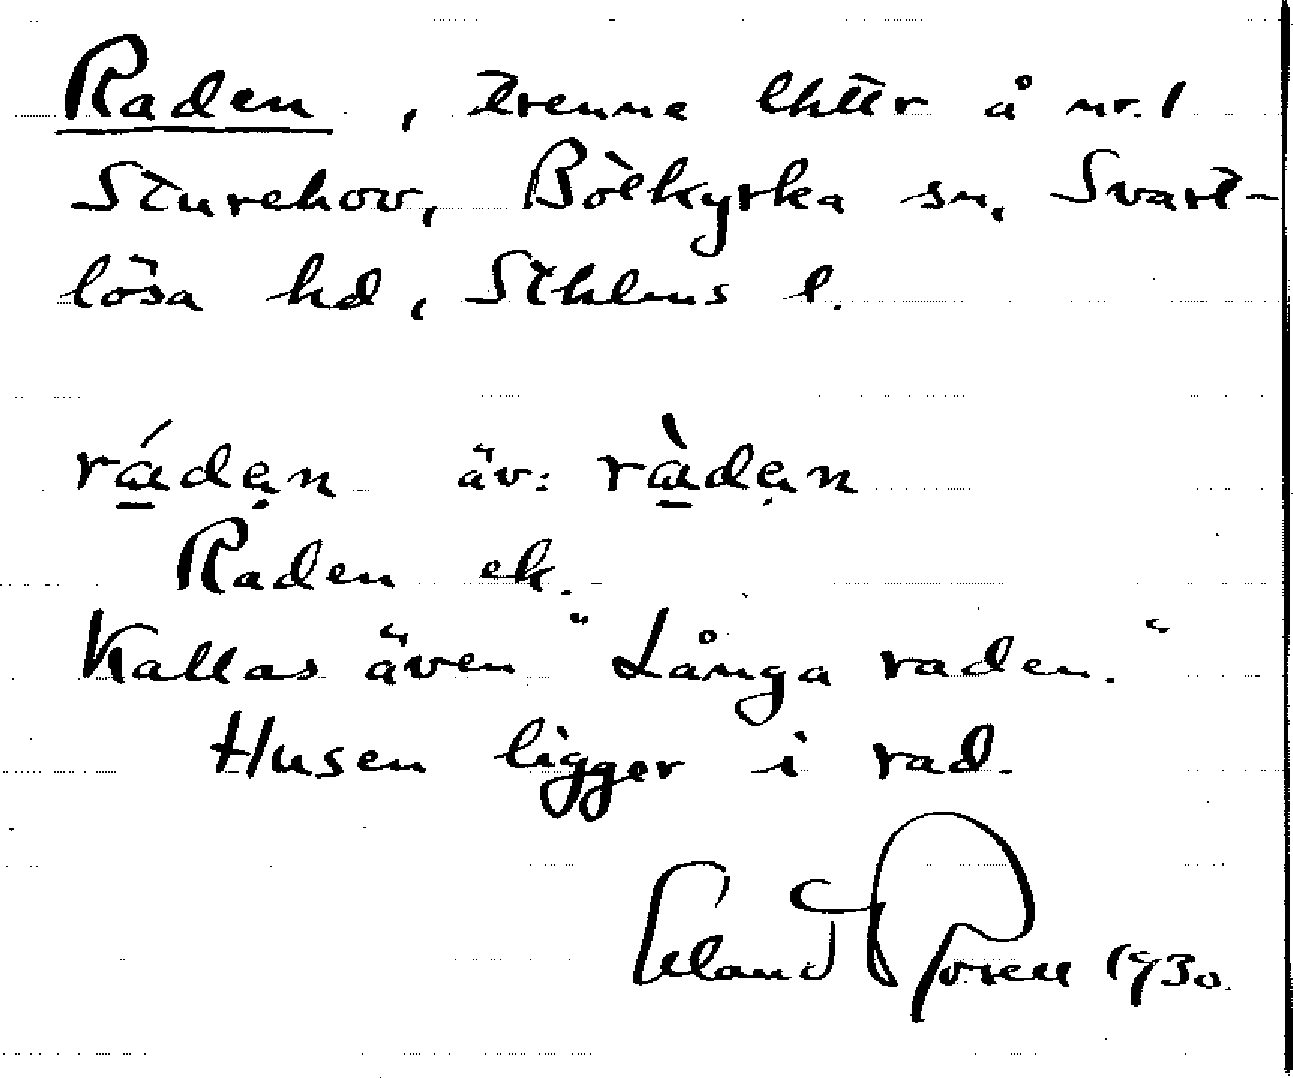 Raden, trenne lhttr å nr. 1
Sturehov, Botkyrka sn, Svart-
lösa hd, Sthlms l.
rá̱dẹn äv: rà̱dẹn
Raden ek.
Kallas även "Långa raden."
Husen ligger i rad.
1930.